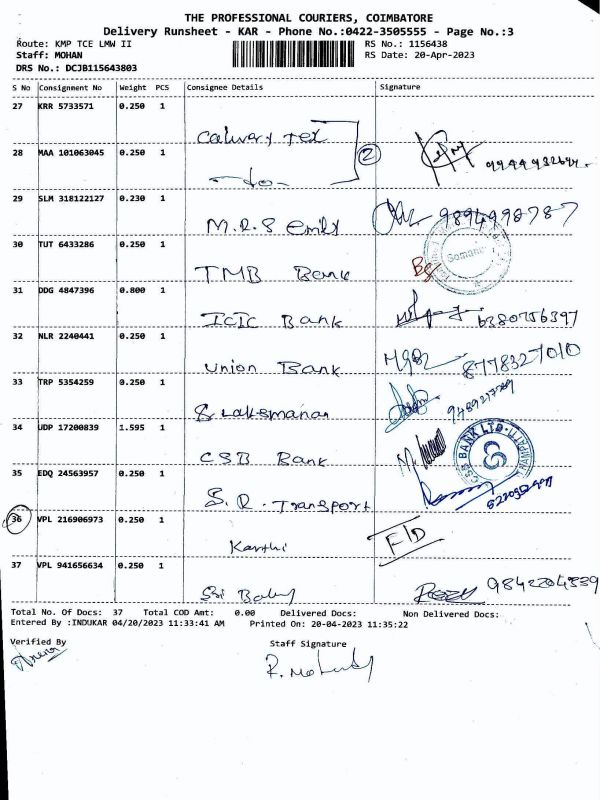 THE PROFESSIONAL COURIERS, COIMBATORE
Delivery Runsheet - KAR - Phone No.:0422-3505555 - Page No.:3
Route: KMP TCE LMW II RS No.: 1156438
Staff: MOHAN RS Date: 20-Apr-2023
DRS No.: DCJB115643803
S No Consignment No Weight PCS Consignee Details Signature
27 KRR 5733571 0.250 1
Calvary Tex
28 MAA 101063045 0.250 1 2
-do-
29 SLM 318122127 0.230 1
M.R.S Emily 9894998787
30 TUT 6433286 0.250 1 Somanur
TMB Bank
31 DDG 4847396 0.800 1
ICIC Bank 6380756397
32 NLR 2240441 0.250 1
Union Bank 8778327010
33 TRP 5354259 0.250 1
S Laksmanan
34 UDP 17200839 1.595 1
CSB Bank CSB BANK LTD
35 EDQ 24563957 0.250 1
S.R. Transport
36 VPL 216906973 0.250 1 F/D
Karthi
37 VPL 941656634 0.250 1
Sri Balaj 9842204839
Total No. Of Docs: 37 Total COD Amt: 0.00 Delivered Docs: Non Delivered Docs:
Entered By :INDUKAR 04/20/2023 11:33:41 AM Printed On: 20-04-2023 11:35:22
Verified By Staff Signature
R. Mohan